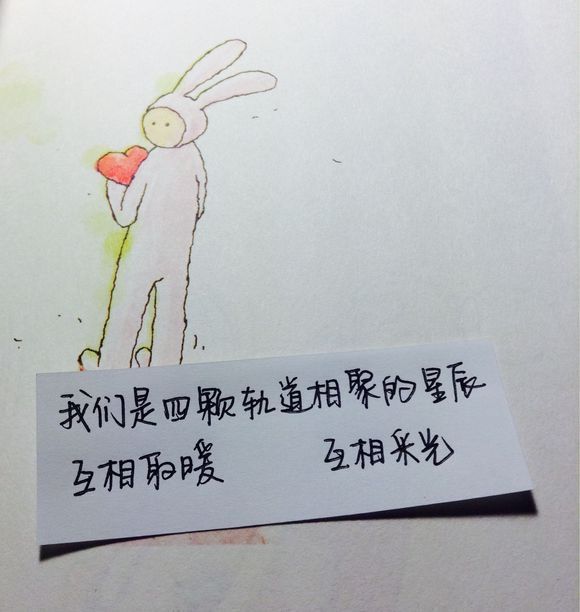 我们是四颗轨道相聚的星辰
互相取暖 互相采光